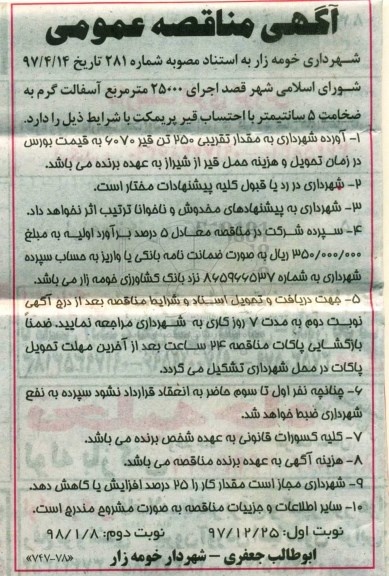 آگهی مناقصه عمومی
شهرداری خومه زار به استناد مصوبه شماره ۲۸۱ تاریخ ۹۷/۴/۱۴
شورای اسلامی شهر قصد اجرای ۲۵۰۰۰ مترمربع آسفالت گرم به
ضخامت ۵ سانتیمتر با احتساب قیر پریمکت با شرایط ذیل را دارد.
۱- آورده شهرداری به مقدار تقریبی ۲۵۰ تن قیر ۶۰۷۰ به قیمت بورس
در زمان تحویل و هزینه حمل قیر از شیراز به عهده برنده می باشد.
۲- شهرداری در رد یا قبول کلیه پیشنهادات مختار است.
۳- شهرداری به پیشنهادهای مخدوش و ناخوانا ترتیب اثر نخواهد داد.
۴- سپرده شرکت در مناقصه معادل ۵ درصد برآورد اولیه به مبلغ
۳۵۰/۰۰۰/۰۰۰ ریال به صورت ضمانت نامه بانکی یا واریز به حساب سپرده
شهرداری به شماره ۸۶۵۹۶۶۵۳۷ نزد بانک کشاورزی خومه زار می باشد.
۵- جهت دریافت و تحویل اسناد و شرایط مناقصه بعد از درج آگهی
نوبت دوم به مدت ۷ روز کاری به شهرداری مراجعه نمایید. ضمناً
بازگشایی پاکات مناقصه ۲۴ ساعت بعد از آخرین مهلت تحویل
پاکات در محل شهرداری تشکیل می گردد.
۶- چنانچه نفر اول تا سوم حاضر به انعقاد قرارداد نشود سپرده به نفع
شهرداری ضبط خواهد شد.
۷- کلیه کسورات قانونی به عهده شخص برنده می باشد.
۸- هزینه آگهی به عهده برنده مناقصه می باشد.
۹- شهرداری مجاز است مقدار کار را ۲۵ درصد افزایش یا کاهش دهد.
۱۰- سایر اطلاعات و جزییات مناقصه به صورت مشروح مندرج است.
نوبت اول: ۹۷/۱۲/۲۵ نوبت دوم: ۹۸/۱/۸
ابوطالب جعفری – شهردار خومه زار «۷۴۷-۷۸»